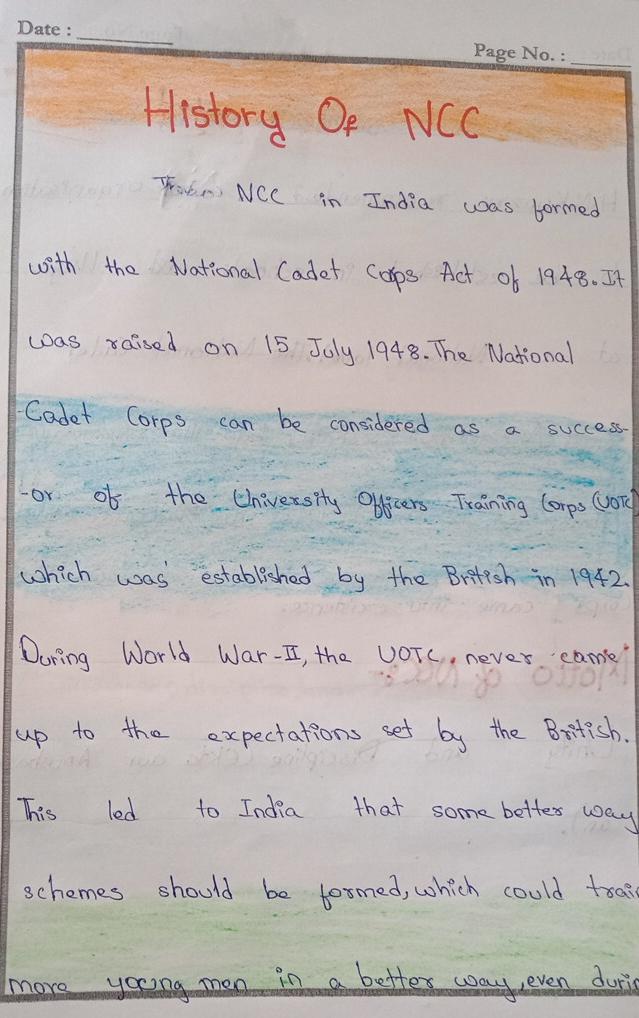 Date :
Page No. :
History Of NCC
NCC in India was formed
with the National Cadet Corps Act of 1948. It
was raised on 15 July 1948. The National
Cadet Corps can be considered as a success-
-or of the University Officers Training Corps (UOTC)
which was established by the British in 1942.
During World War-II, the UOTC, never came
up to the expectations set by the British.
This led to India that some better way
schemes should be formed, which could
more young men in a better way, even